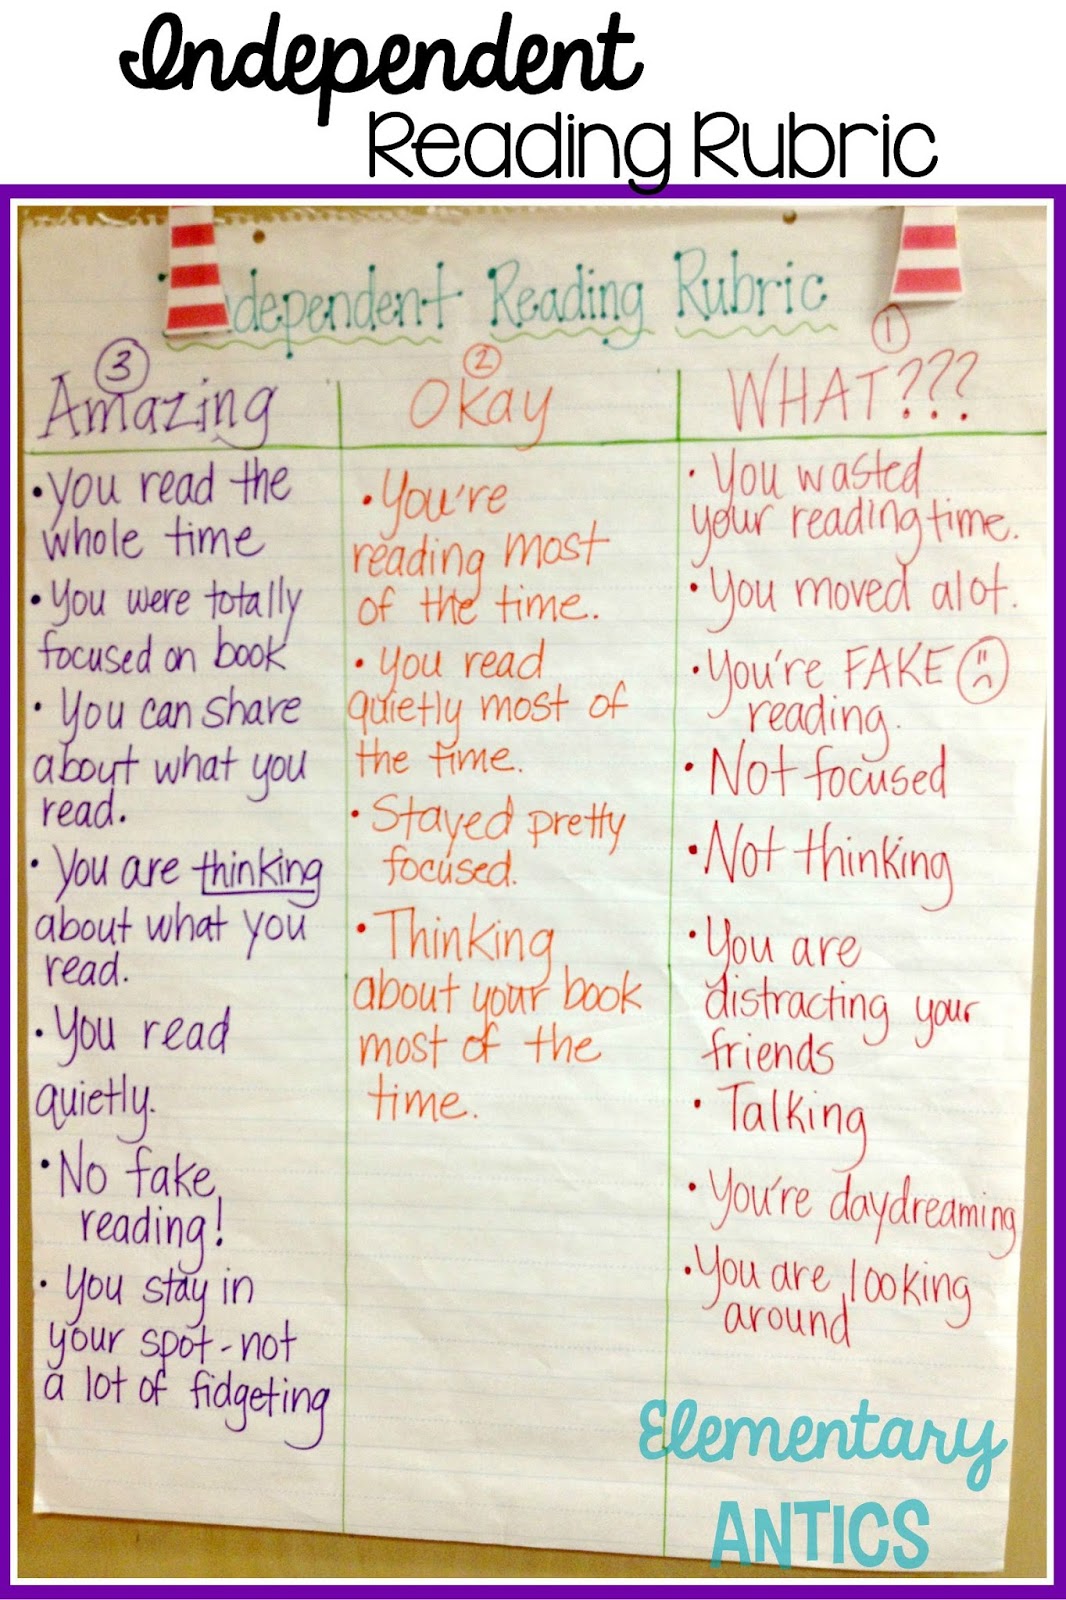 Independent
Reading Rubric
Independent Reading Rubric
3
Amazing
• You read the
whole time
• You were totally
focused on book
• You can share
about what you
read.
• You are thinking
about what you
read.
• You read
quietly.
• No fake
reading!
• You stay in
your spot - not
a lot of fidgeting
2
Okay
• You're
reading most
of the time.
• You read
quietly most of
the time.
• Stayed pretty
focused.
• Thinking
about your book
most of the
time.
1
WHAT???
• You wasted
your reading time.
• You moved alot.
• You're FAKE
reading.
• Not focused
• Not thinking
• You are
distracting your
friends
• Talking
• You're daydreaming
• You are looking
around
Elementary
ANTICS